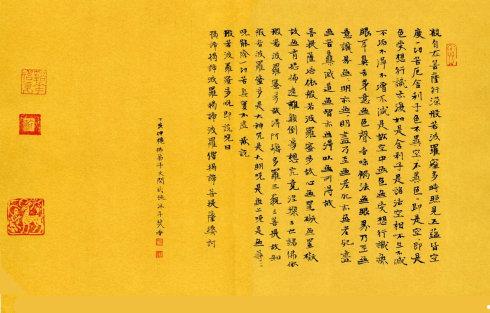 觀自在菩薩行深般若波羅蜜多時照見五蘊皆空
度一切苦厄舍利子色不異空空不異色色即是空空即是
色受想行識亦復如是舍利子是諸法空相不生不滅
不垢不淨不增不減是故空中無色無受想行識無
眼耳鼻舌身意無色聲香味觸法無眼界乃至無
意識界無無明亦無無明盡乃至無老死亦無老死盡
無苦集滅道無智亦無得以無所得故
菩提薩埵依般若波羅蜜多故心無罣礙無罣礙
故無有恐怖遠離顛倒夢想究竟涅槃三世諸佛依
般若波羅蜜多故得阿耨多羅三藐三菩提故知
般若波羅蜜多是大神咒是大明咒是無上咒是無等等
咒能除一切苦真實不虛故說
般若波羅蜜多咒即說咒曰
揭諦揭諦波羅揭諦波羅僧揭諦菩提薩婆訶